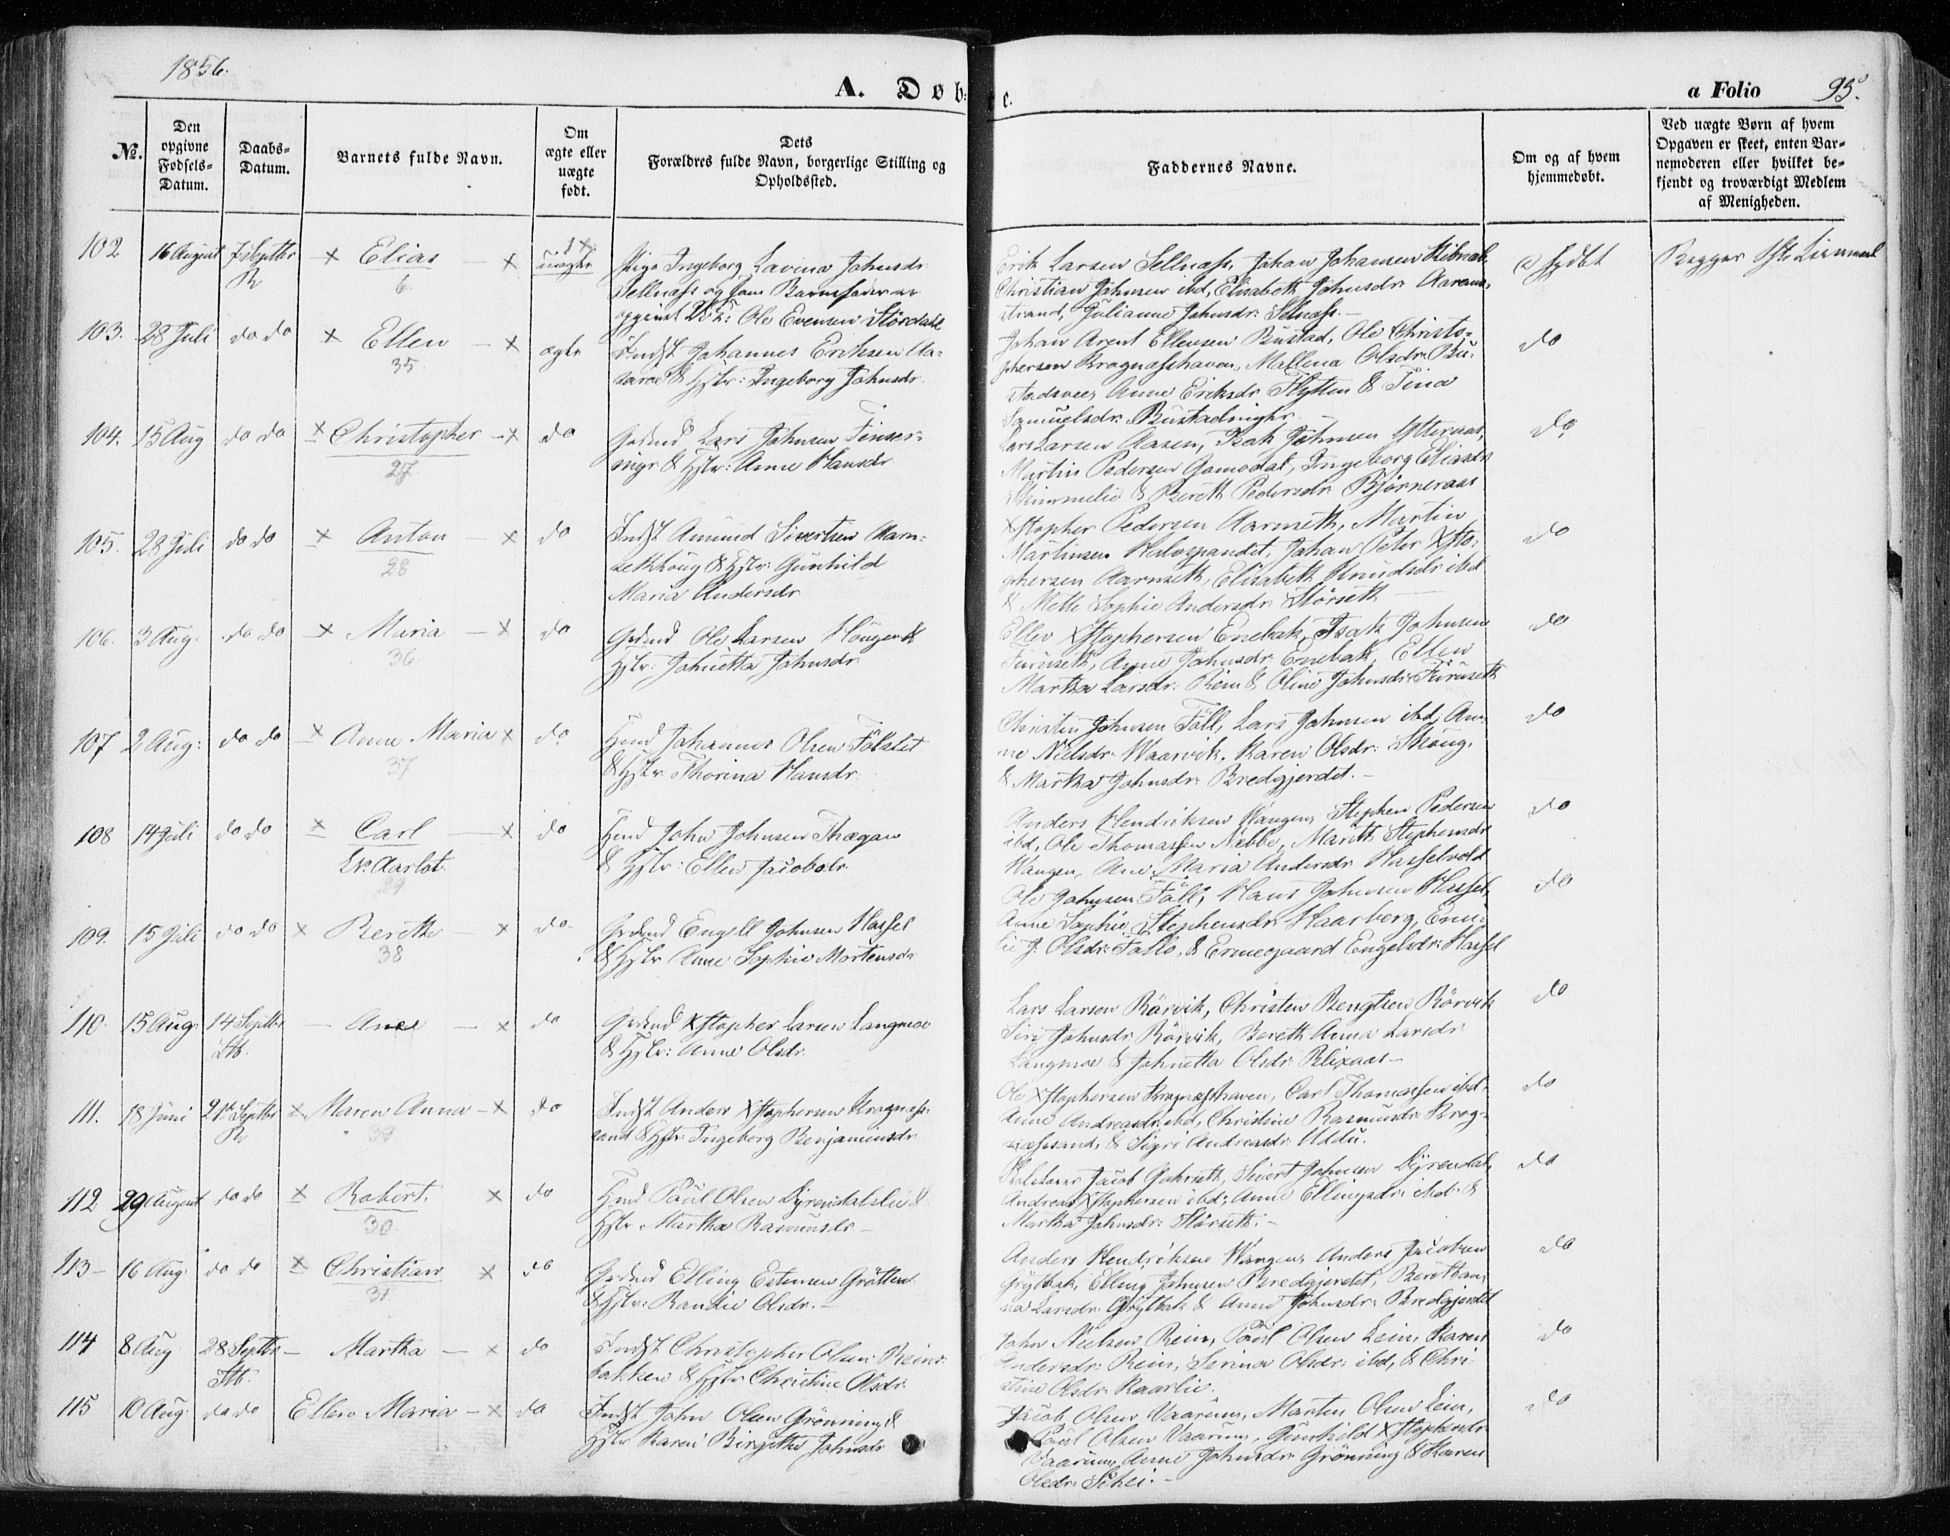 1856.
A. Døb-
te.
a Folio 95.
No.
Den opgivne Fødsels-Datum.
Daabs-Datum.
Barnets fulde Navn.
Om ægte eller uægte født.
Dets Forældres fulde Navn, borgerlige Stilling og Opholdssted.
Faddernes Navne.
Om og af hvem hjemmedøbt.
Ved uægte Børn af hvem Opgaven er skeet, enten Barnemoderen eller hvilket bekjendt og troværdigt Medlem af Menigheden.
102 16 August 7 Septbr R × Elias × uægte
6.
Pige Ingeborg Lavina Johnsdr
Sellnæss og som Barnefader er
opgivet Ole Evensen Størdahl
Erik Larsen Sellnæss, Johan Johansen
Christian Johnsen ibd, Elisabeth Johnsdr Aarnes-
strand, Julianne Johnsdr Selnæss.
103. 28 Juli do do × Ellen × ægte
35.
Indst Johannes Eriksen Aa-
saroe & Hstr: Ingeborg Johnsdr
Johan Arent Ellensen Bustad, Ole Christo-
phersen Kragnæshavn, Mallena Olsdr Bu-
stadsvee, Anne Eriksdr Flytten & Tina
Samuelsdr Bustad
do
104. 15 Aug do do × Christopher × do
27
Grdmd Lars Johnsen Finser-
& Hstr: Anne Hansdr
Lars Larsen Aasen, Isak Johnsen
Martin Pedersen Gamodal, Ingeborg Eliasdr
& Bereth Pedersdr Bjørneraas
do
105. 28 Juli do do × Anton × do
28
Indst Amund Sivertsen Aarn-
sethhoug & Hstr: Gunhild
Maria Andersdr
Xstopher Pedersen Aarnseth, Martin
Martinsen Halvspandet, Johan Peter Xsto-
phersen Aarnseth, Elisabeth Knudsdr ibd
& Mette Sophie Andersdr Størseth
do
106. 3 Aug. do do × Maria × do
36.
Grdmd Ole Larsen Hougen &
Hstr: Johnetta Johnsdr
Ellev Xstophersen Enebak, Isak Johnsen
Furuseth, Anne Johnsdr Enebak, Ellen
Martha Larsdr: Rein & Oline Johnsdr Furuseth
do
107 2 Aug: do do × Anne Maria × do
37
Hmd Johannes Olsen Fölstet
& Hstr Thorina Hansdr
Christen Johnsen Fall, Lars Johnsen ibd, An-
ne Nielsdr Waarvik, Karen Olsdr: Skoug,
& Martha Johnsdr Bredgjerdet.
do
108 14 Juli do do × Carl × do
29
Hmd John Johnsen Thragan
& Hstr: Ellen Jacobsdr
Anders Hendriksen Wangen, Stephen Pedersen
ibd, Ole Thomassen Nebbe, Marith Stephensdr
Wangen, Ane Maria Andersdr Hasselvold
do
109. 15 Juli do do × Bereth × do
38
Grdmd Engell Johnsen Hassel
& Hstr Anne Sophie Mortensdr
Ole Johnsen Fall, Hans Johnsen Hassel,
Anne Sophie Stephensdr Haarberg, Emi-
lie J. Olsdr: Fallo, & Ermegaard Engelsdr: Hassel
do
110. 15 Aug: 14 Septbr Stb. Ane × do
Grdmd Xstopher Larsen Langmoe
& Hstr: Anne Olsdr
Lars Larsen Rörvik, Christen Bengtsen Rörvik
Siri Johnsdr Rörvik, Bereth Anna Larsdr
Langmoe & Johnetta Olsdr Blixaas
do
111. 18 Juni 21de Septbr R × Maren Anna × do
39
Indst Anders Xstophersen Kragnæs-
sand & Hstr: Ingeborg Benjaminsdr
Ole Xstophersen Kragnæshaven, Carl Thomassen ibd
Anne Andreasdr ibd, Christine Rasmusdr Krag-
næssand, & Sigri Andreasdr Uddu.
do
112 29 August do do × Robert. × do
30.
Hmd Paul Olsen Dyrendalslie &
Hstr Martha Rasmusdr
Jacob Gahrseth, Sivert Johnsen Dyrendal,
Andreas Xstophersen ibd, Anne Ellingsdr ibd &
Martha Johnsdr: Størseth.
do
113 16 Aug do do × Christian × do
31
Grdmd Elling Estensen Grötten
& Hstr: Randie Olsdr.
Anders Hendriksen Wangen, Anders Jacobsen
Grytbak, Elling Johnsen Bredgjerdet, Bereth An-
na Larsdr Grytbak & Anne Johnsdr: Bredgjerdet
do
114 8 Aug 28 Septbr Stb. Martha × do
Indst Christopher Olsen Reins-
bakken & Hstr Christine Olsdr
John Nielsen Rein, Paul Olsen Lein, Karen
Andersdr: Rein, Serina Olsdr: ibd, & Chri-
stine Olsdr Kaarlie.
do
115 10 Aug do do Ellen Maria × do
Indst John Olsen Grönning &
Hstr Karen Birgitte Johnsdr
Jacob Olsen Vaarum, Morten Olsen Lein,
Paul Olsen Vaarum, Gunhild Xstophersdr
Vaarum, Anne Johnsdr Grönning & Karen
Olsdr: Schei.
do